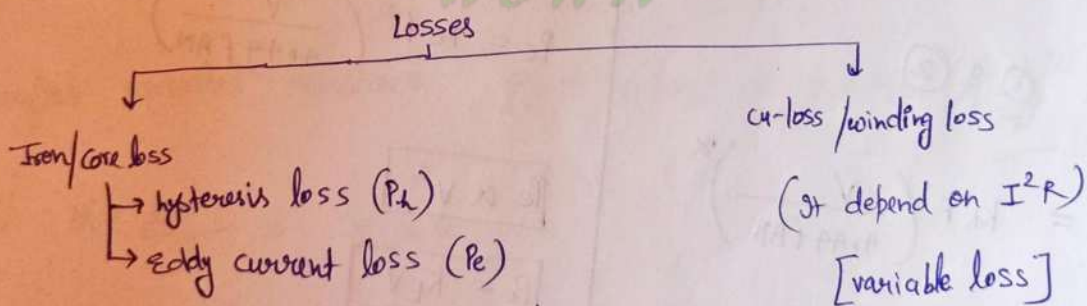 Losses
Iron/core loss
→ hysteresis loss (Ph)
→ Eddy current loss (Pe)
cu-loss /winding loss
(It depend on I²R)
[variable loss]